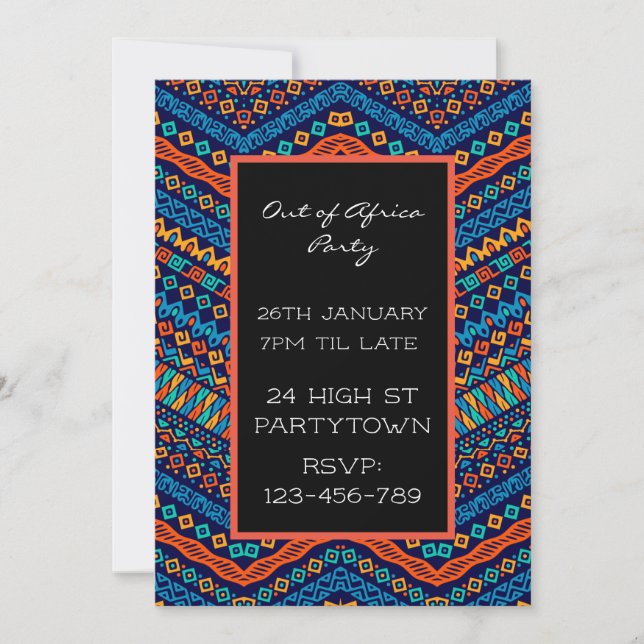 Out of Africa
Party
26TH JANUARY
7PM TIL LATE
24 HIGH ST
PARTYTOWN
RSVP:
123-456-789